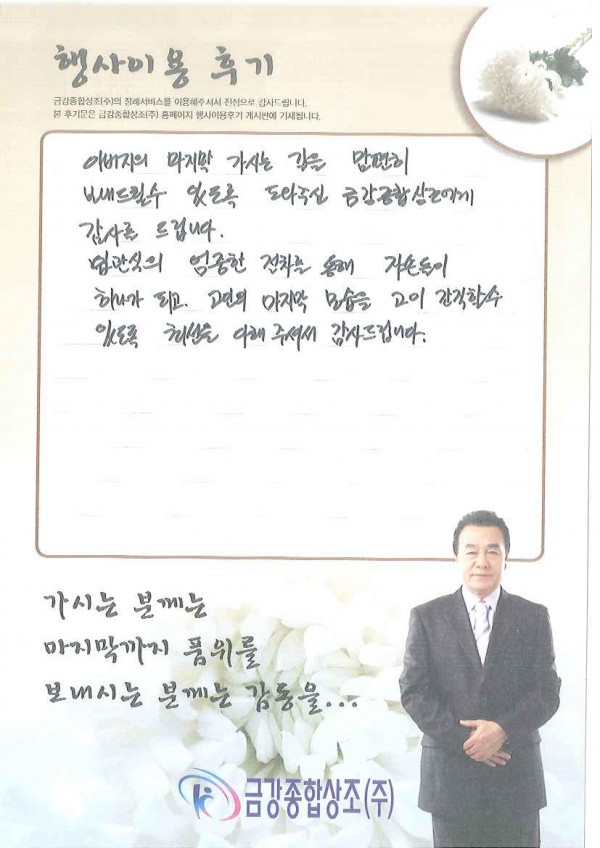 행사이용 후기
금강종합상조(주)의 장례서비스를 이용해주셔서 진심으로 감사드립니다.
본 후기문은 금강종합상조(주) 홈페이지 행사이용후기 게시판에 기재됩니다.
아버지의 마지막 가시는 길을 맘편히
보내드릴수 있도록 도와주신 금강종합상조에게
감사를 드립니다.
엄종한 절차를 통해 자손들이
하나가 되고. 고인의 마지막 모습을 고이 간직할수
있도록 최선을 다해 주셔서 감사드립니다.
가시는 분께는
마지막까지 품위를
보내시는 분께는 감동을...
금강종합상조(주)